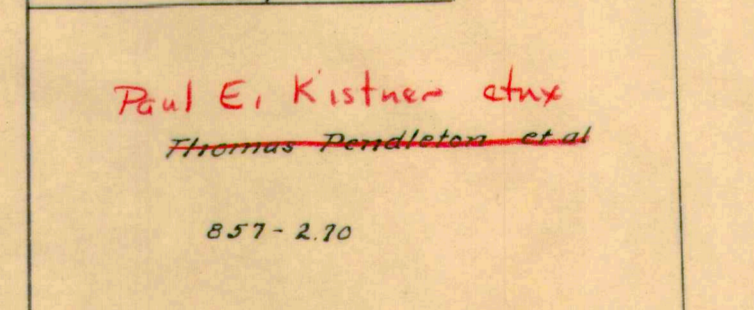 Paul E. Kistner etux
Thomas Pendleton et al
857-2.70